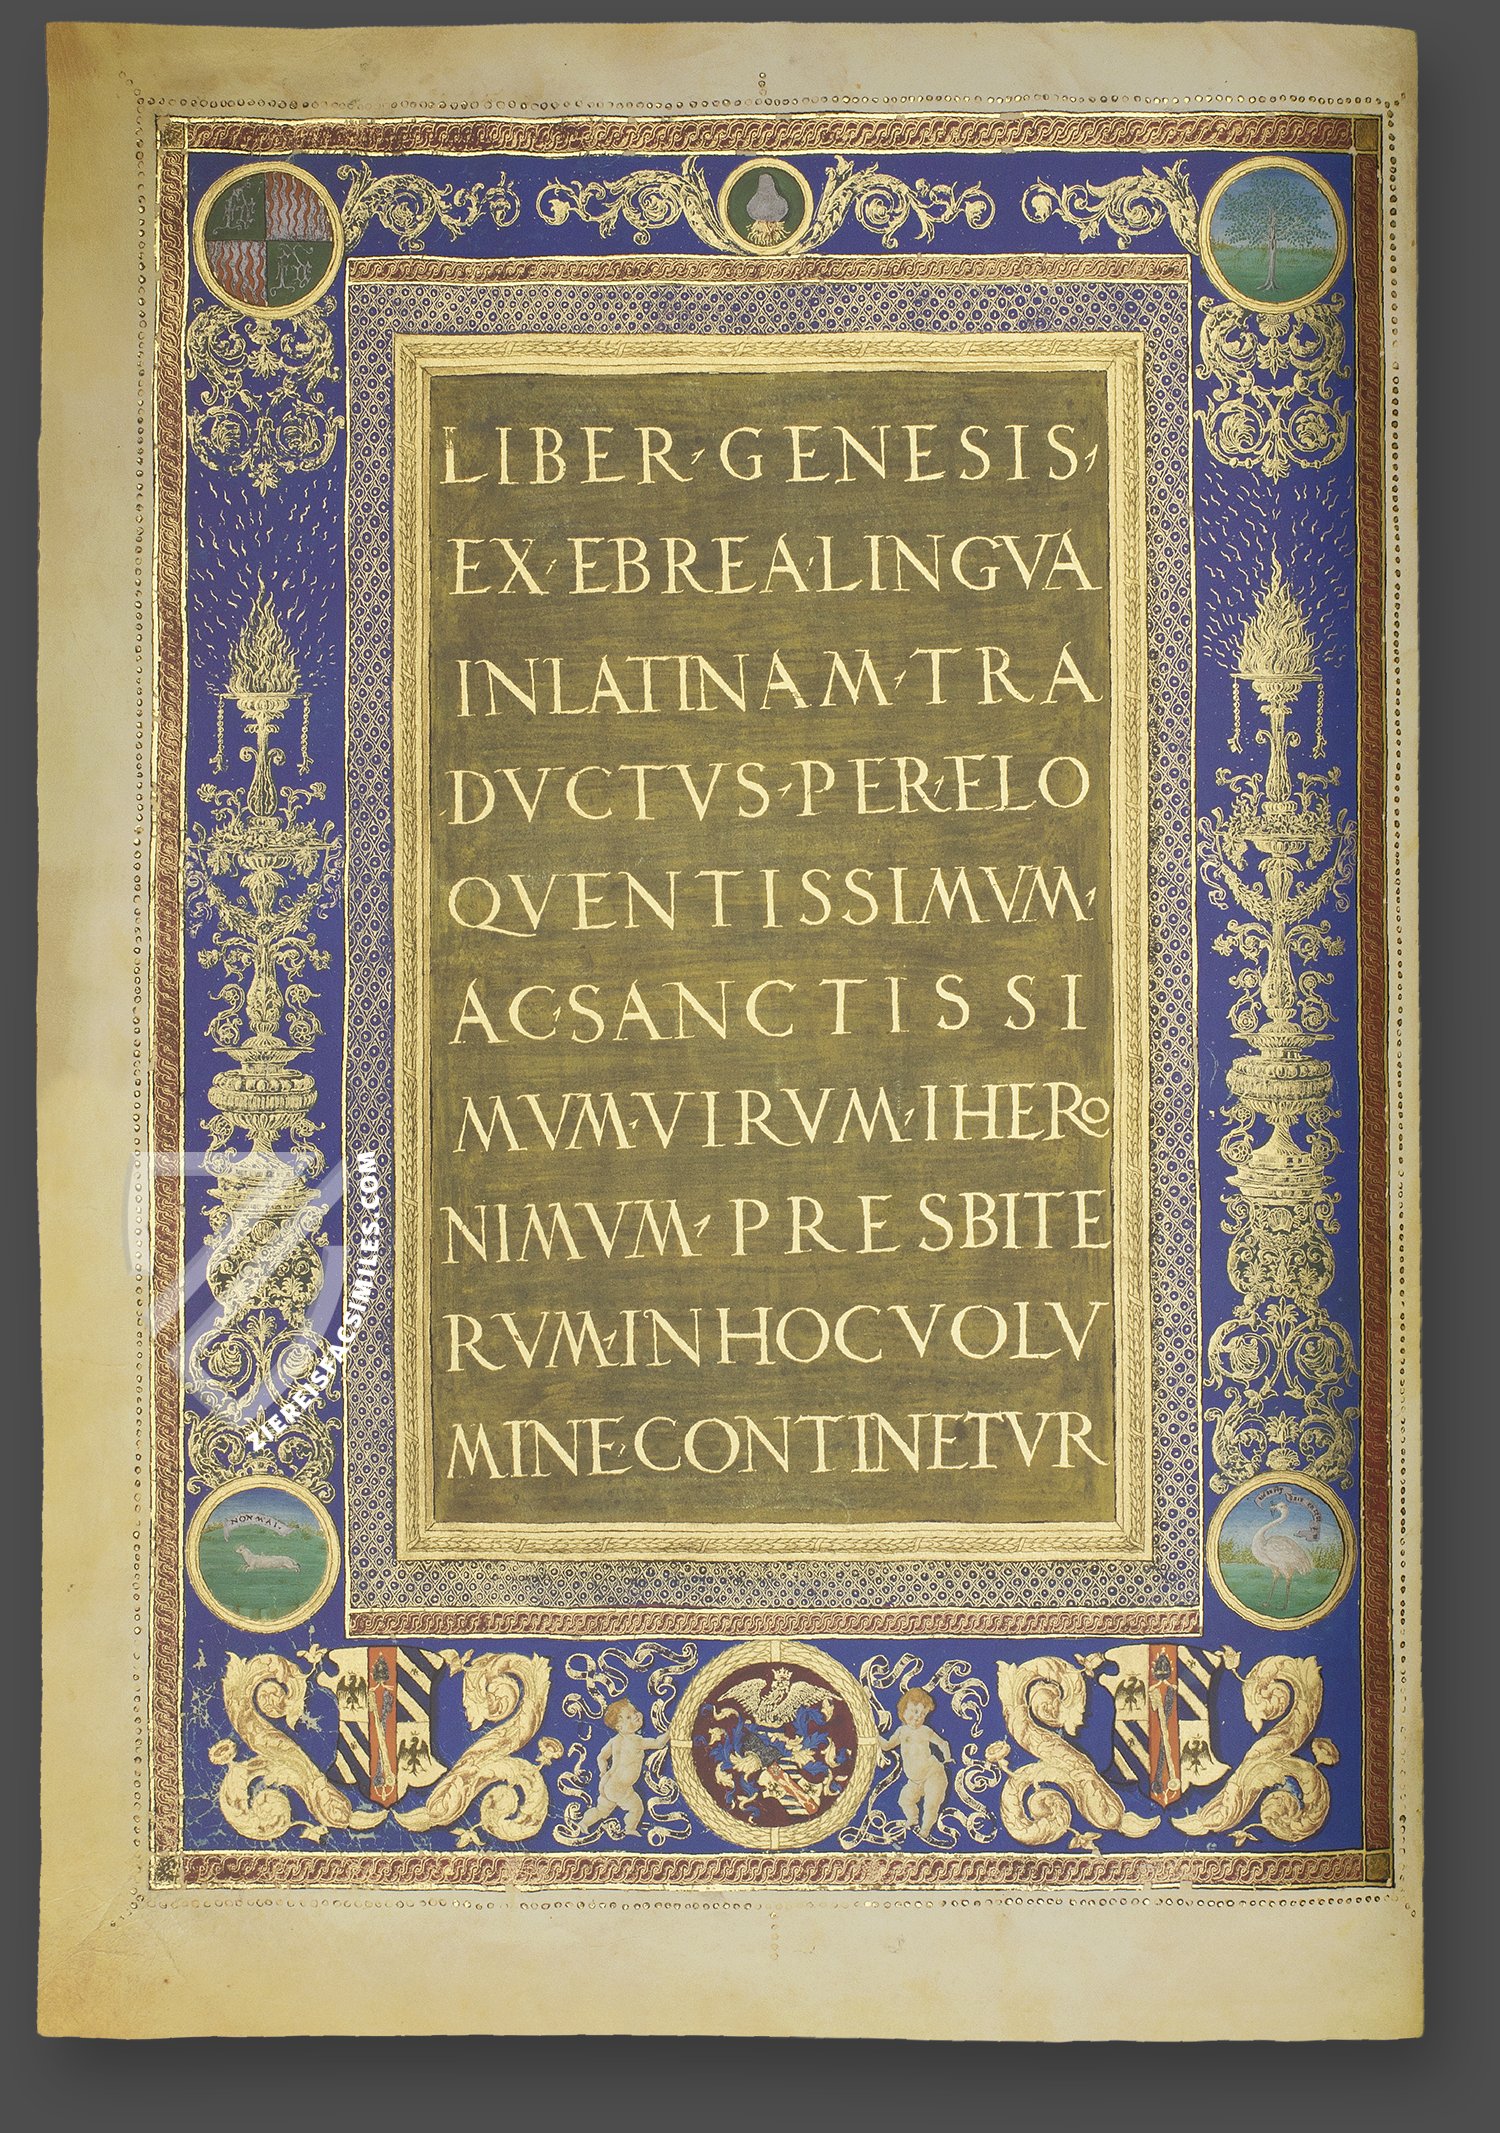 LIBER·GENESIS·
EX·EBREA·LINGVA
INLATINAM·TRA
DVCTVS·PER·ELO
QVENTISSIMVM·
AC·SANCTISSI
MVM·VIRVM·IHERO
NIMVM·PRESBITE
RVM·INHOCVOLV
MINE·CONTINETVR
NON MAI·
ZIEREISFACSIMILES.COM